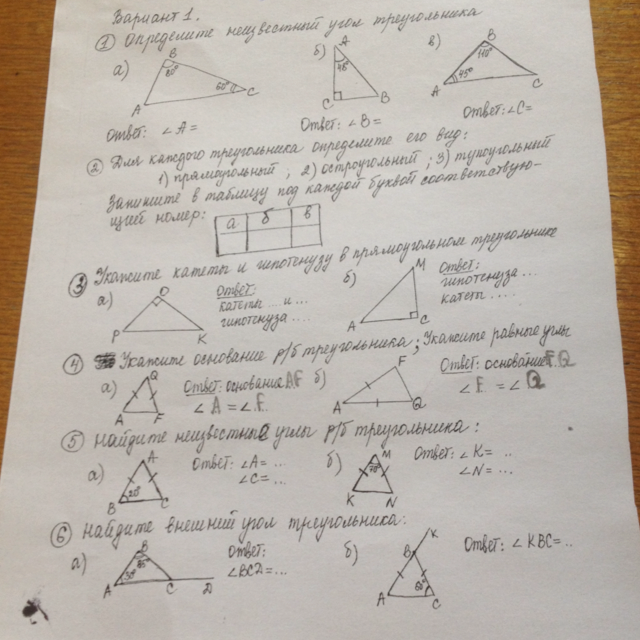 Вариант 1.
① Определите неизвестный угол треугольника
а) B 80° 60° C A
б) A 48° C B
в) B 110° A 45° C
Ответ: ∠A= Ответ: ∠B= Ответ: ∠C=
② Для каждого треугольника определите его вид:
1) прямоугольный, 2) остроугольный; 3) тупоугольный
Запишите в таблицу под каждой буквой соответствую-
щией номер: а б в
③ Укажите катеты и гипотенузу в прямоугольном треугольнике
а) O P K Ответ: катеты ... и ...
гипотенуза ....
б) M A C Ответ:
гипотенуза ...
катеты ....
④ Укажите основание р/б треугольника; Укажите равные углы
а) Q A F Ответ: основание AF
∠A = ∠F.
б) F A Q Ответ: основание F.Q
∠F. = ∠Q
⑤ Найдите неизвестные углы р/б треугольника:
а) A B C Ответ: ∠A= ...
∠C= ...
б) M 70° K N Ответ: ∠K= ..
∠N= ...
⑥ Найдите внешний угол треугольника:
а) B 30° A C D Ответ:
∠BCD=...
б) K B A C Ответ: ∠KBC=..